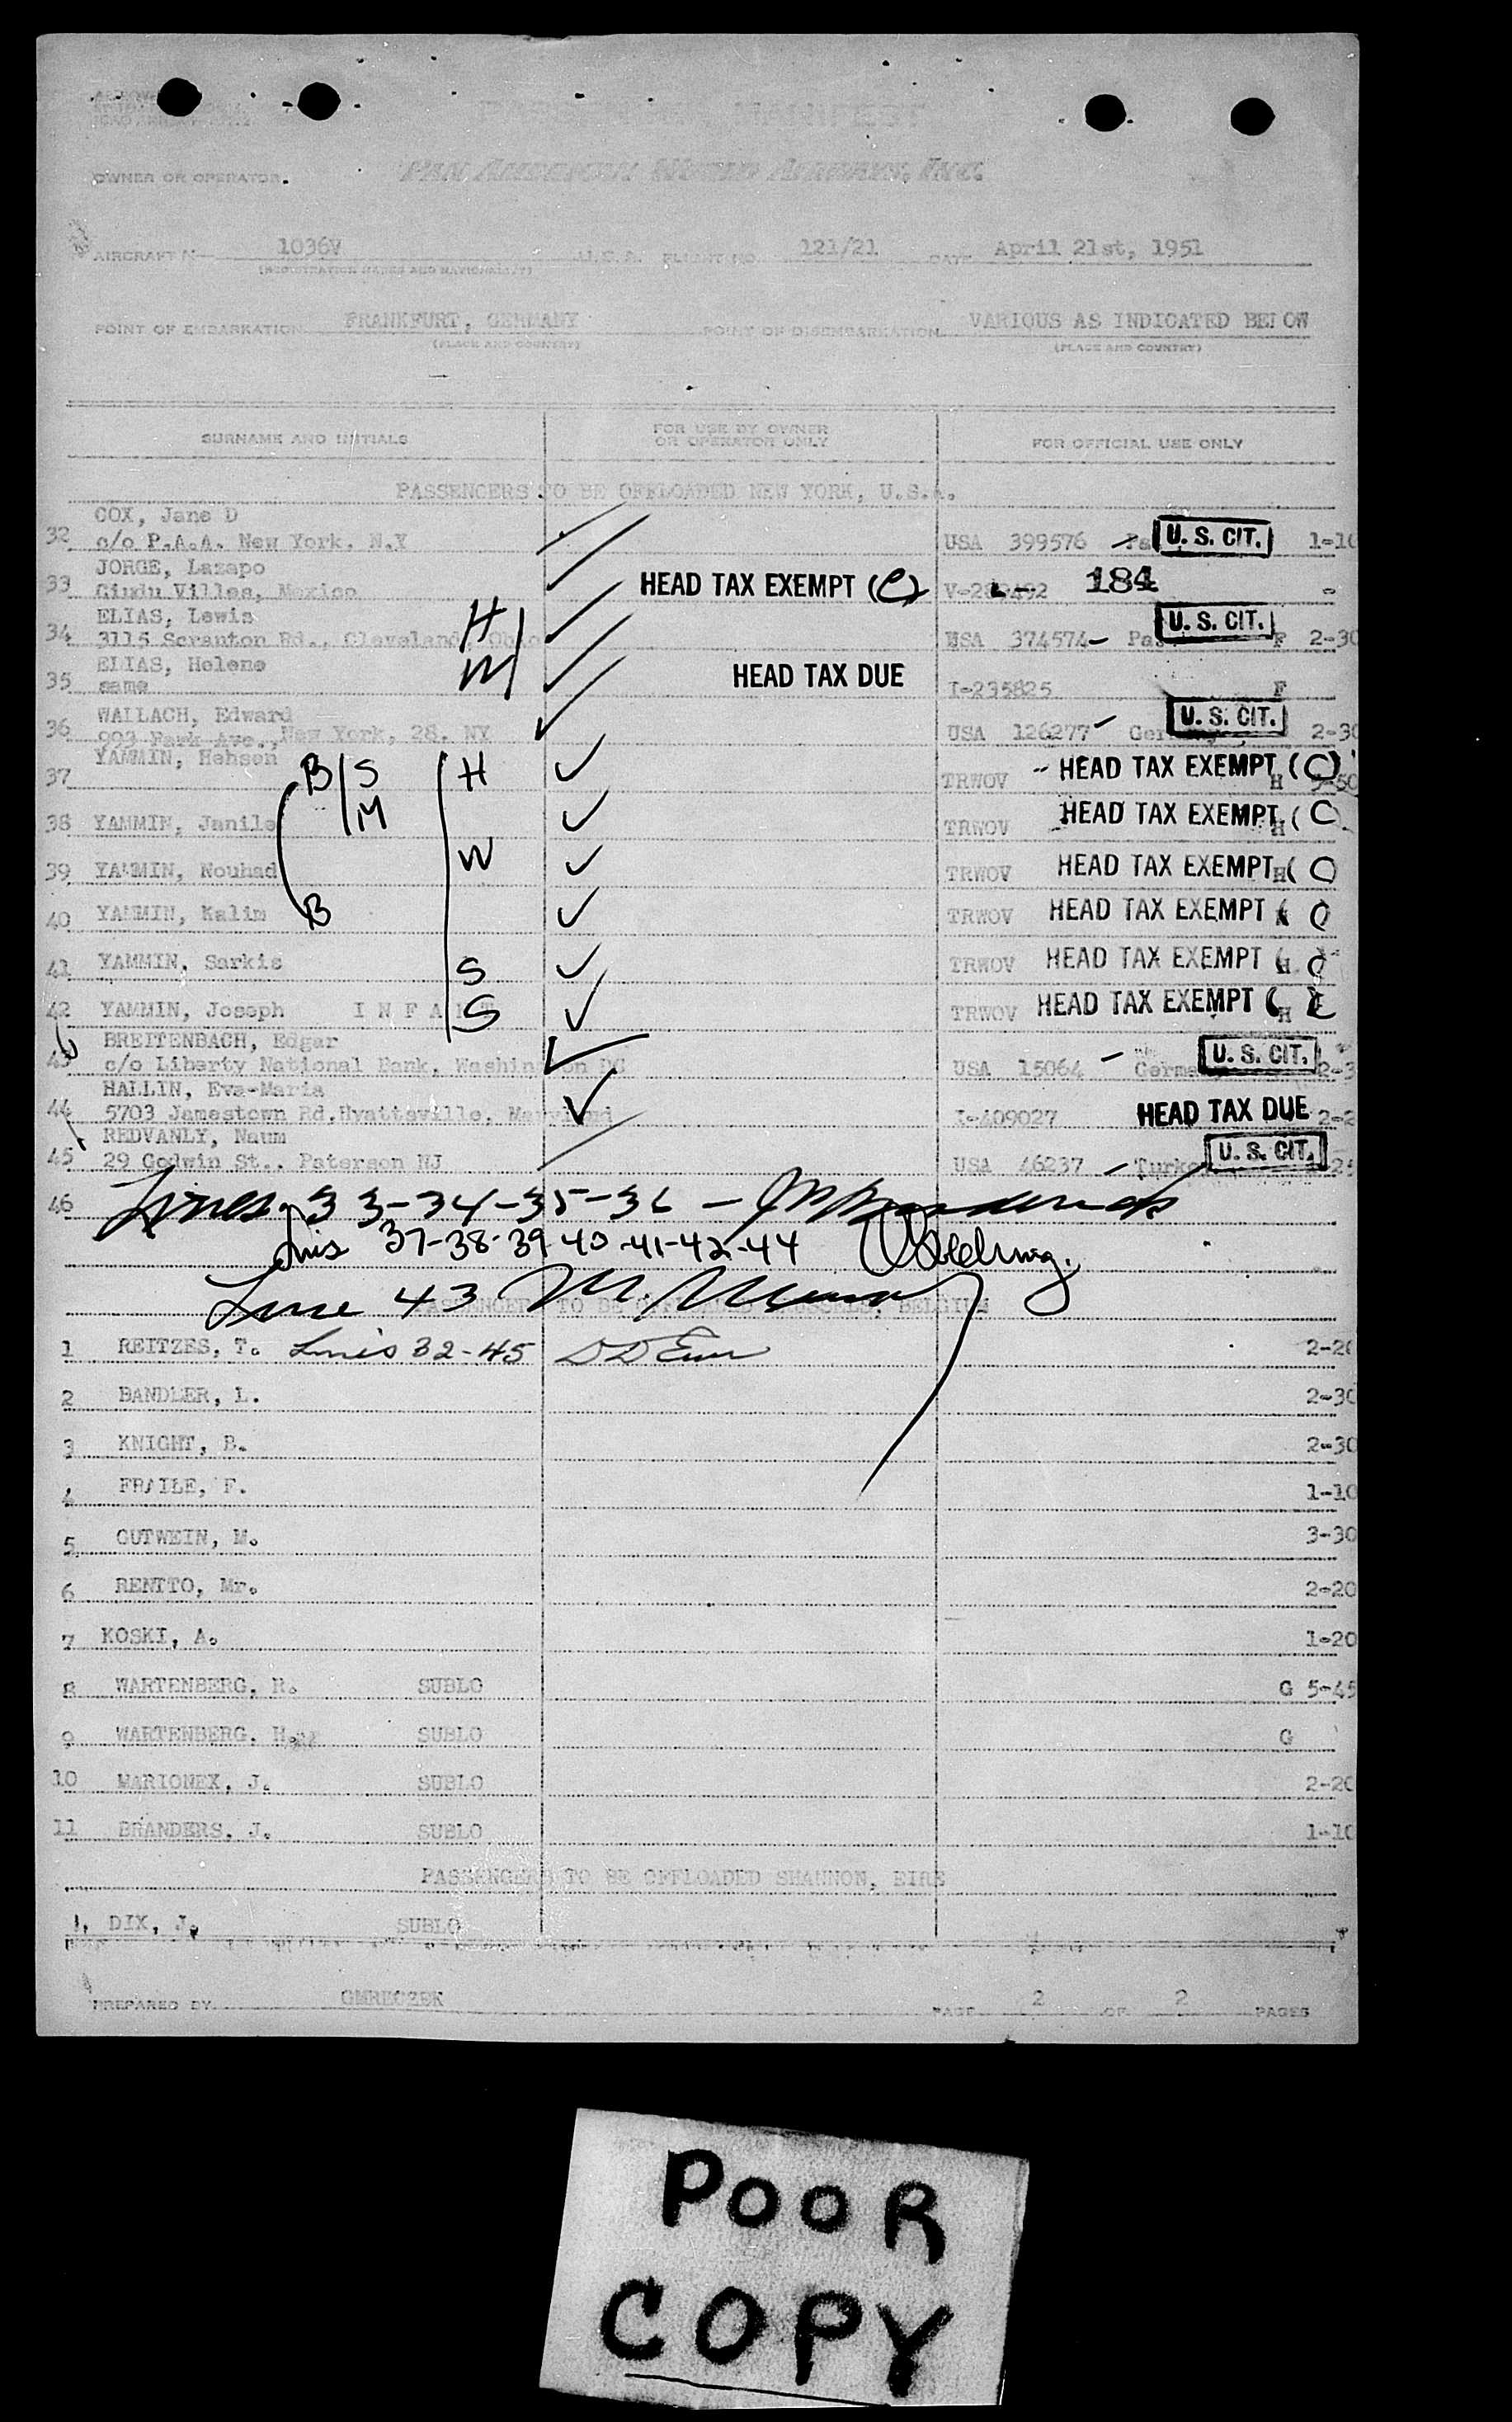 PASSENGER MANIFEST
OWNER OR OPERATOR. PAN AMERICAN WORLD AIRWAYS, INC.
AIRCRAFT N— 1036V U.S.A. FLIGHT NO. 121/21 DATE April 21st, 1951
(REGISTRATION MARKS AND NATIONALITY)
POINT OF EMBARKATION FRANKFURT, GERMANY POINT OF DISEMBARKATION VARIOUS AS INDICATED BELOW
(PLACE AND COUNTRY) (PLACE AND COUNTRY)
SURNAME AND INITIALS FOR USE BY OWNER OR OPERATOR ONLY FOR OFFICIAL USE ONLY
PASSENGERS TO BE OFFLOADED NEW YORK, U.S.A.
COX, Jane D
32 c/o P.A.A. New York. N.Y USA 399576 U. S. CIT. 1-10
JORGE, Lazapo
33 Villes, Mexico HEAD TAX EXEMPT (C) 184 -
ELIAS, Lewis H
34 3115 Scranton Rd., Cleveland, Ohio USA 374574- Pa U. S. CIT. F 2-30
ELIAS, Helene M
35 same HEAD TAX DUE I-235825 F
WALLACH, Edward
36 993 Park Ave., New York, 28. NY USA 126277 - Ger U. S. CIT. 2-30
YAMMIN, Hehsen
37 B S H TRWOV -- HEAD TAX EXEMPT (C) H 5-50
38 YAMMIN, Janile M TRWOV HEAD TAX EXEMPT H (C
39 YAMMIN, Nouhad W TRWOV HEAD TAX EXEMPT H (C
40 YAMMIN, Kalim B TRWOV HEAD TAX EXEMPT (C
41 YAMMIN, Sarkis S TRWOV HEAD TAX EXEMPT H C
42 YAMMIN, Joseph I N F A N T S TRWOV HEAD TAX EXEMPT ( H C
BREITENBACH, Edgar
43 c/o Liberty National Bank, Washington DC USA 15064 - Germa U. S. CIT. 2-3
HALLIN, Eva-Maria
44 5703 Jamestown Rd.Hyattsville, Maryland I-409027 HEAD TAX DUE 2-2
REDVANLY, Naum
45 29 Godwin St., Paterson NJ USA 46237 - Turk U. S. CIT.
46 Lines 33-34-35-36 -
Lines 37-38-39-40-41-42-44
Line 43
PASSENGERS TO BE OFFLOADED BRUSSELS, BELGIUM
1 REITZES, T. Lines 32-45 2-20
2 BANDLER, L. 2-30
3 KNIGHT, B. 2-30
4 FRAILE, F. 1-10
5 GUTWEIN, M. 3-30
6 RENTTO, Mr. 2-20
7 KOSKI, A. 1-20
8 WARTENBERG, R. SUBLO G 5-45
9 WARTENBERG, H. SUBLO G
10 MARIONEX, J. SUBLO 2-20
11 BRANDERS, J. SUBLO 1-10
PASSENGERS TO BE OFFLOADED SHANNON, EIRE
1. DIX, J. SUBLO
PREPARED BY GMRECZEK PAGE 2 OF 2 PAGES
POOR
COPY